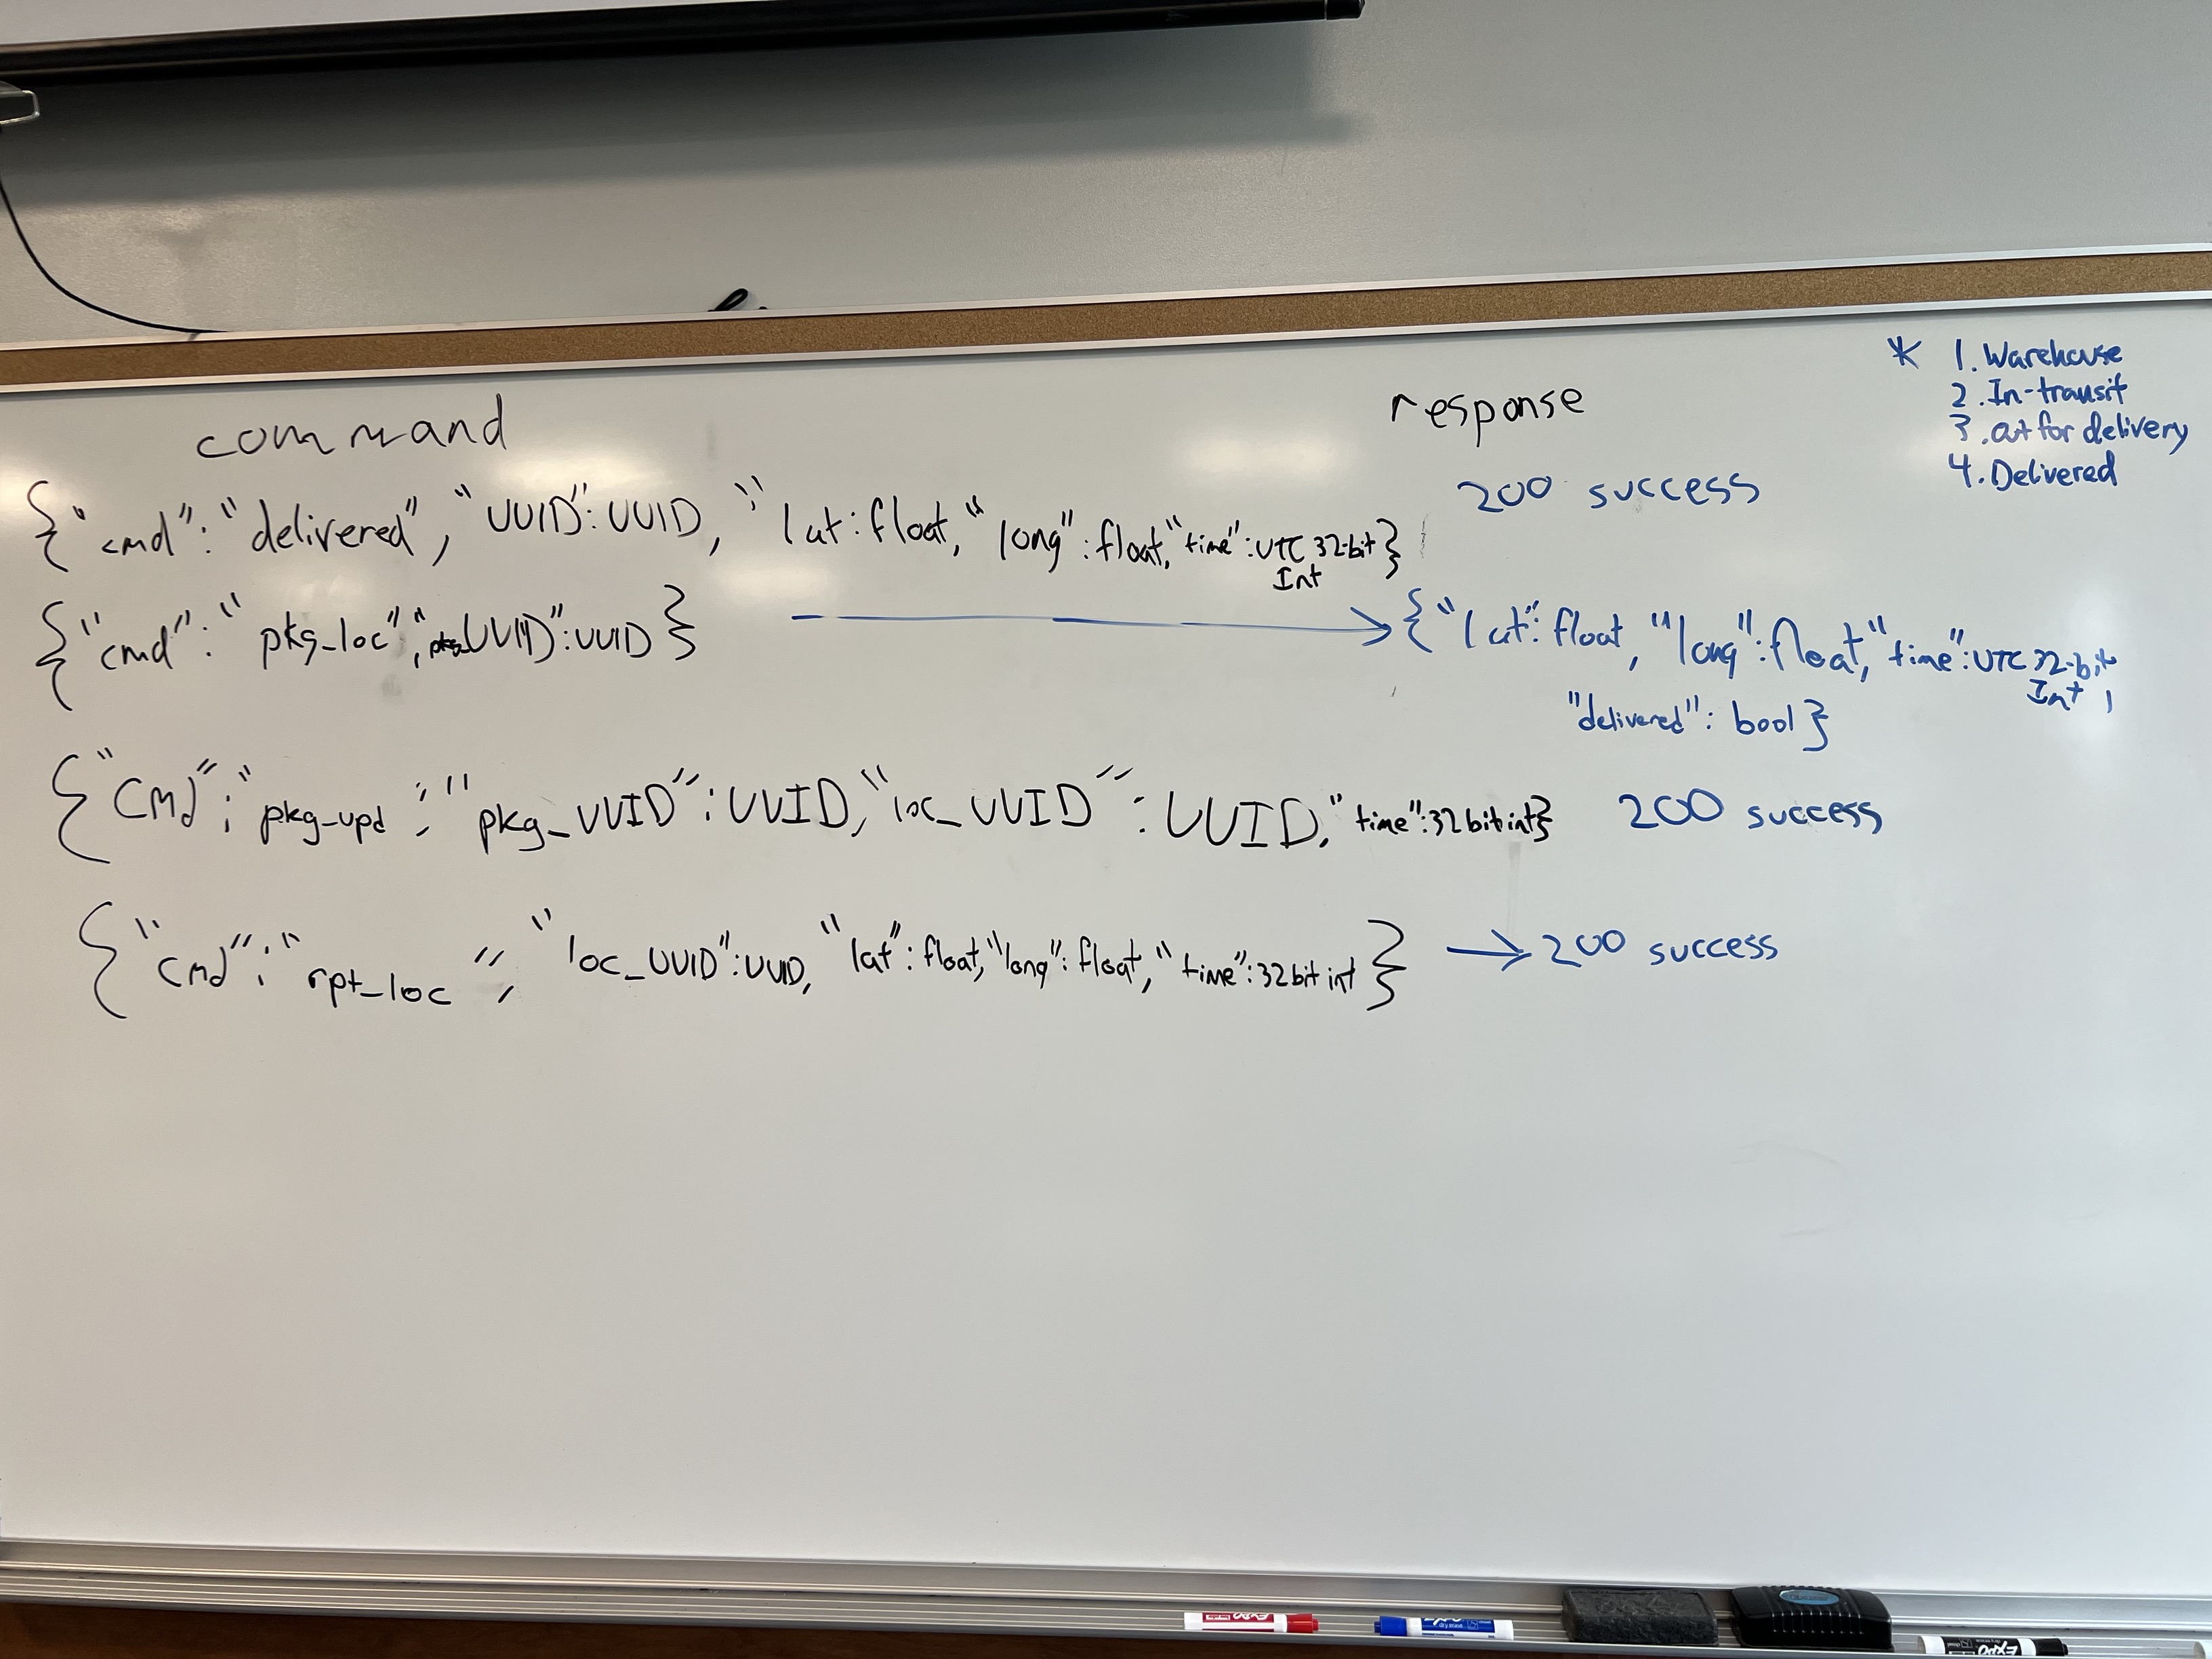 command
response
* 1. Warehouse
2. In-transit
3. out for delivery
4. Delivered
{"cmd":"delivered","UUID":UUID, "lat:float,"long":float,"time":UTC 32-bit}
Int
200 success
{"cmd":"pkg_loc","UUID":UUID}
{"lat":float,"long":float,"time":UTC 32-bit
Int,
"delivered": bool}
{"cmd":"pkg_upd","pkg_UUID":UUID,"loc_UUID":UUID,"time":32bit int}
200 success
{"cmd":"rpt_loc","loc_UUID":UUID,"lat":float,"long":float,"time":32bit int}
200 success
EXPO
EXPO